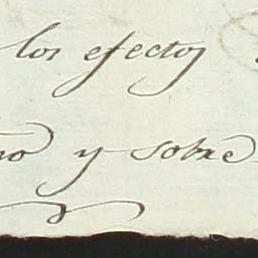 los efectos
y sobre